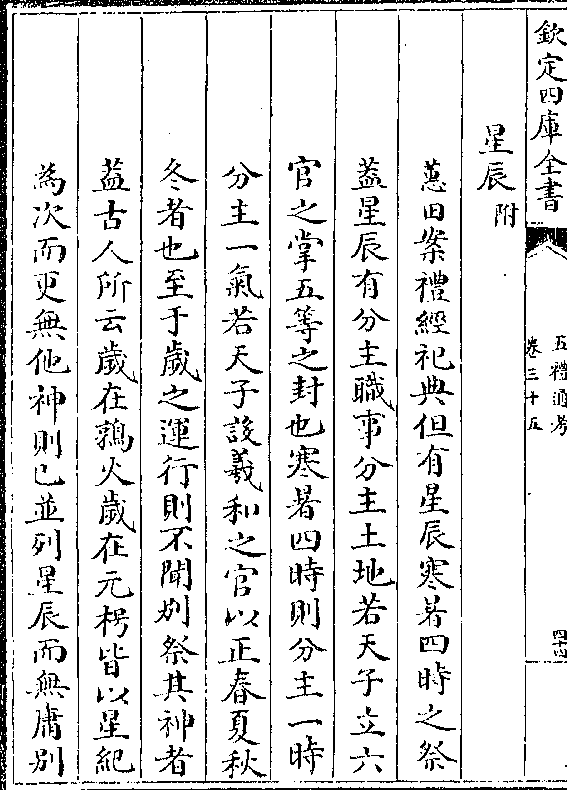 欽定四庫全書
五禮通考
卷三十五
四十四
星辰附
蕙田案禮經祀典但有星辰寒暑四時之祭
蓋星辰有分主職事分主土地若天子立六
官之掌五等之封也寒暑四時則分主一時
分主一氣若天子設羲和之官以正春夏秋
冬者也至于歲之運行則不聞别祭其神者
葢古人所云歲在鶉火歲在元枵皆以星紀
為次而更無他神則已並列星辰而無庸别